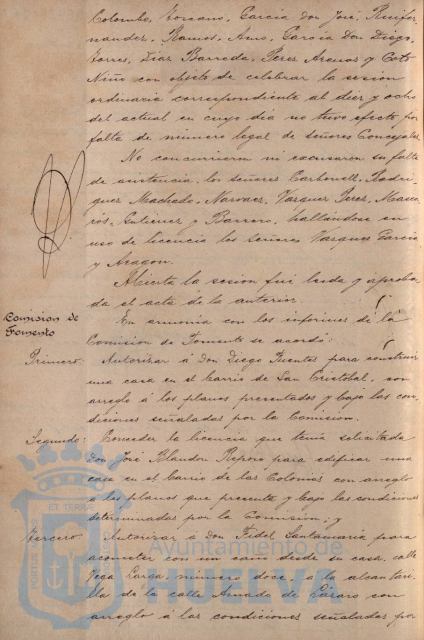 Colombo, Romano, García don José, Ruifer-
nandez, Ramos, Amo, García Don Diego,
Torres, Diaz Barreda, Perez Aramos y Coto
Niño con objeto de celebrar la sesion
ordinaria correspondiente al diez y ocho
del actual en cuyo dia no tuvo efecto por
falta de número legal de señores Concejales
No concurrieron ni excusaron su falta
de asistencia, los señores Carbonell, Rodri-
guez Machado, Narvaez, Vazquez Perez,
rós, Gutierrez y Barrero, hallándose en
uso de licencia los señores Vazquez García
y Aragon.
Abierta la sesion fué leida y aproba-
da el acta de la anterior.
Comision de
Fomento
En armonía con los informes de la
Comision de Fomento se acordó:
Primero: Autorizar á Don Diego Fuentes para construir
una casa en el barrio de San Cristobal, con
arreglo á los planos presentados y bajo las con-
diciones señaladas por la Comision.
Segundo: Conceder la licencia que tenia solicitada
Don José Blandon para edificar una
casa en el barrio de las Colonias con arreglo
á los planos que presenta y bajo las condiciones
determinadas por la Comision; y
Tercero: Autorizar á Don Fidel Santamaria para
acometer con un caño desde su casa, calle
Vega Larga, número doce, á la alcantari-
lla de la calle Amado de Lázaro con
arreglo á las condiciones señaladas por
Ayuntamiento de
HUELVA